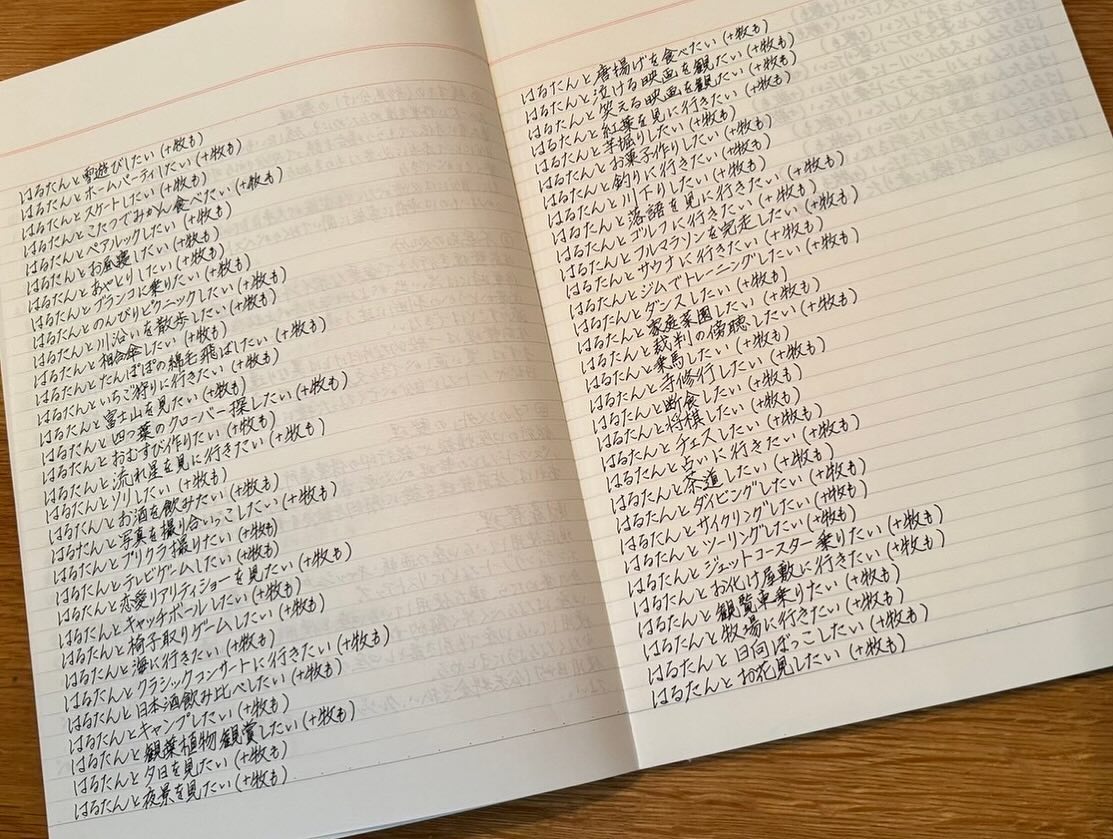 はるたんと雪遊びしたい(+牧も)
はるたんとホームパーティしたい(+牧も)
はるたんとスケートしたい(+牧も)
はるたんとこたつでみかん食べたい(+牧も)
はるたんとペアルックしたい(+牧も)
はるたんとお昼寝したい(+牧も)
はるたんとあやとりしたい(+牧も)
はるたんとブランコに乗りたい(+牧も)
はるたんとのんびりピクニックしたい(+牧も)
はるたんと川沿いを散歩したい(+牧も)
はるたんと相合傘したい(+牧も)
はるたんとたんぽぽの綿毛飛ばしたい(+牧も)
はるたんといちご狩りに行きたい(+牧も)
はるたんと富士山を見たい(+牧も)
はるたんと四つ葉のクローバー探したい(+牧も)
はるたんとおむすび作りたい(+牧も)
はるたんと流れ星を見に行きたい(+牧も)
はるたんとソリしたい(+牧も)
はるたんとお酒を飲みたい(+牧も)
はるたんと写真を撮り合いっこしたい(+牧も)
はるたんとプリクラ撮りたい(+牧も)
はるたんとテレビゲームしたい(+牧も)
はるたんと恋愛リアリティショーを見たい(+牧も)
はるたんとキャッチボールしたい(+牧も)
はるたんと椅子取りゲームしたい(+牧も)
はるたんと海に行きたい(+牧も)
はるたんとクラシックコンサートに行きたい(+牧も)
はるたんと日本酒飲み比べしたい(+牧も)
はるたんとキャンプしたい(+牧も)
はるたんと観葉植物観賞したい(+牧も)
はるたんと夕日を見たい(+牧も)
はるたんと夜景を見たい(+牧も)
はるたんと唐揚げを食べたい(+牧も)
はるたんと泣ける映画を観たい(+牧も)
はるたんと笑える映画を観たい(+牧も)
はるたんと紅葉を見に行きたい(+牧も)
はるたんと芋掘りしたい(+牧も)
はるたんとお菓子作りしたい(+牧も)
はるたんと釣りに行きたい(+牧も)
はるたんと川下りしたい(+牧も)
はるたんと落語を見に行きたい(+牧も)
はるたんとゴルフに行きたい(+牧も)
はるたんとフルマラソンを完走したい(+牧も)
はるたんとサウナに行きたい(+牧も)
はるたんとジムでトレーニングしたい(+牧も)
はるたんとダンスしたい(+牧も)
はるたんと家庭菜園したい(+牧も)
はるたんと裁判の傍聴したい(+牧も)
はるたんと乗馬したい(+牧も)
はるたんと寺修行したい(+牧も)
はるたんと断食したい(+牧も)
はるたんと将棋したい(+牧も)
はるたんとチェスしたい(+牧も)
はるたんと占いに行きたい(+牧も)
はるたんと茶道したい(+牧も)
はるたんとダイビングしたい(+牧も)
はるたんとサイクリングしたい(+牧も)
はるたんとツーリングしたい(+牧も)
はるたんとジェットコースター乗りたい(+牧も)
はるたんとお化け屋敷に行きたい(+牧も)
はるたんと観覧車乗りたい(+牧も)
はるたんと牧場に行きたい(+牧も)
はるたんと日向ぼっこしたい(+牧も)
はるたんとお花見したい(+牧も)